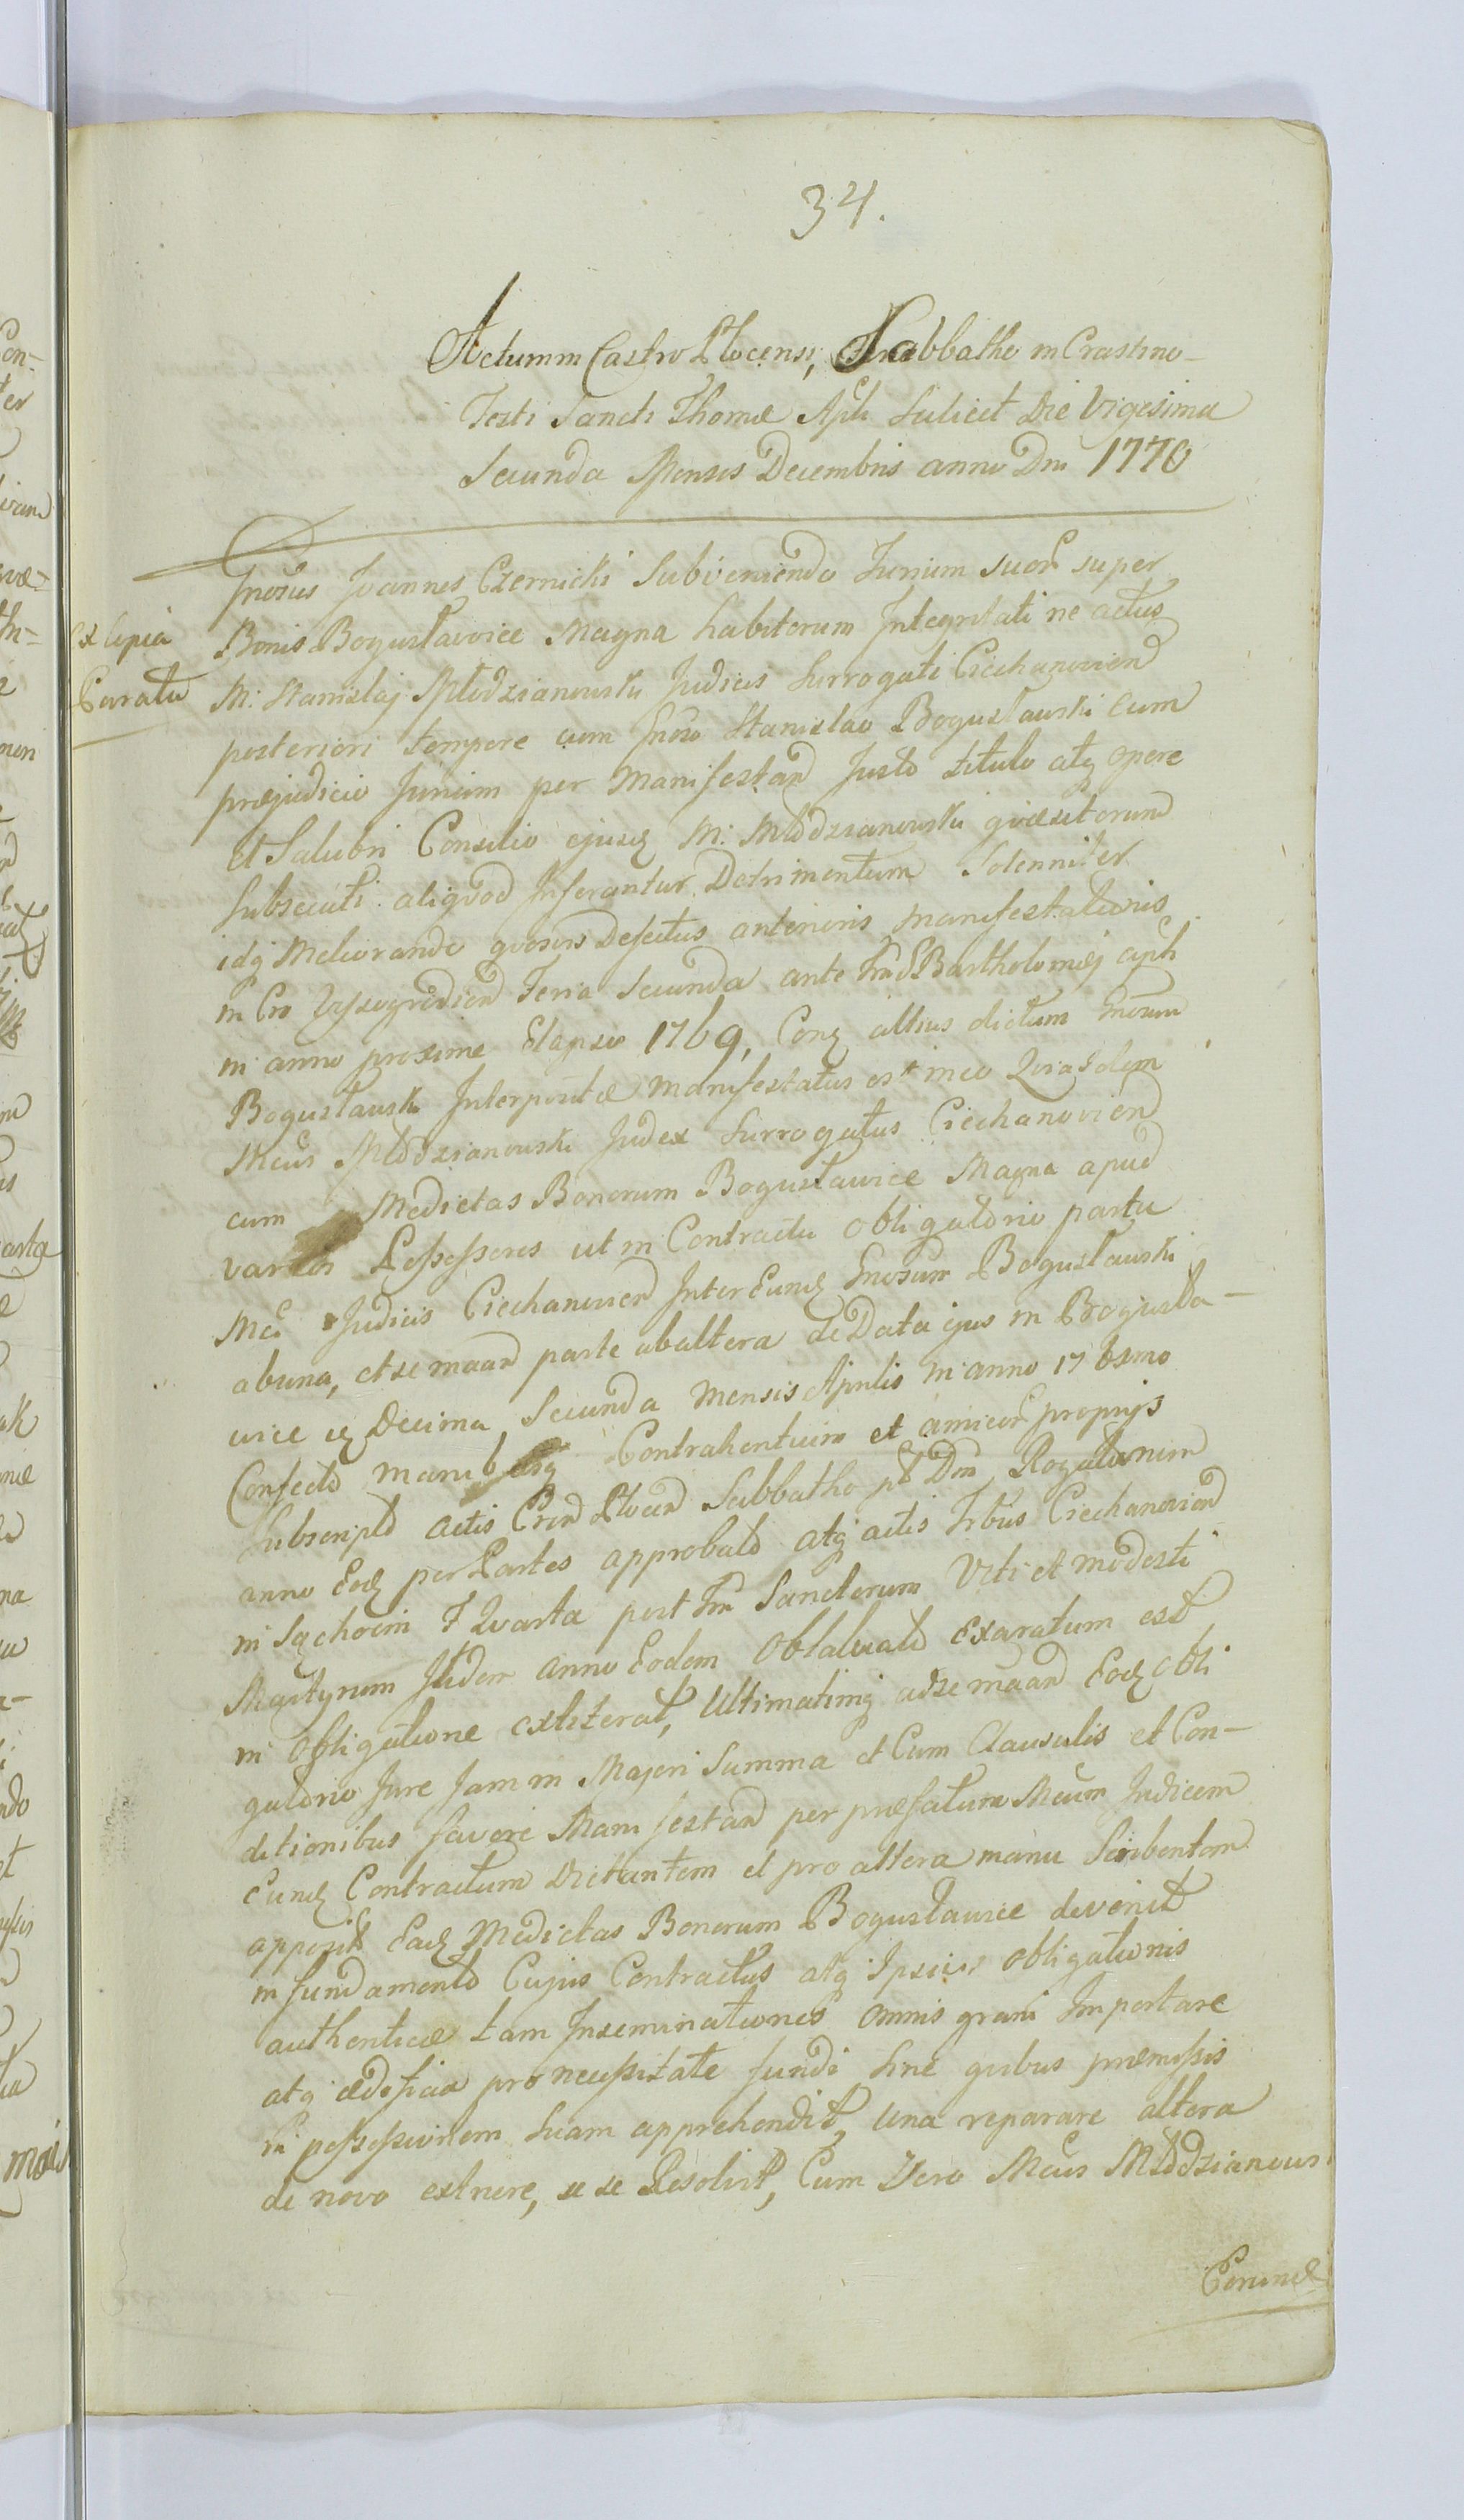 34.
Actum in Castro Plocensi, Sabbatho in Crastino
Festi Sancti Thomæ Apli Scilicet Die Vigesima
Secunda Mensis Decembris anno Dni 1770
Gnosus Joannes Czernicki Subveniendo Jurium suor super
Ex Copia
Bonis Bogusławice Magna habitorum Integritati ne actus
Parata
M: Stanislaj Młodzianowski Judicis Surrogati Ciechanovien
posteriori tempore cum Gnoso Stanislao Bogusławski cum
præjudicio Jurium per Manifestan Justo titulo atq opere
et Salubri Consilio ejusq M: Młodzianowski qvæsitorum
Subsecuti aliqvod Inferantur Detrimentum Solenniter
idq Meliorando qvosvis Defectus anterioris manifestationis
in Cro Vyszogrodien Feria Secunda ante Fm S Bartholomej Apli
in anno proxime Elapso 1769, Conq altius dictum Gnosum
Bogusławski Interpositæ manifestatus est in eo Qvia idem
Mcus Młodzianowski Judex Surrogatus Ciechanovien
cum Medietas Bonorum Bogusławice Magna apud
varios Possessores ut in Contractu obligatorio parte
Mci Judicis Ciechanovien Inter Eunq Gnosum Bogusławski
ab una, et se maan parte ab altera de Data ejus in Bogusła-
wice iq Decima Secunda Mensis Aprilis in anno 17
Confecto manibusq Contrahentium et amicor proprijs
Subscripto actis Cren Plocen Sabbatho pt Dm Rogationum
anno Eoq per Partes approbato atq actis Trbus Ciechanovien
in Sąchocin F Qvarta post Fm Sanctorum Viti et Modesti
Martyrum Itidem anno Eodem Oblatvato Exaratum est
in obligatione extiterat, Ultimatimq ad se maan Eoq obli
gatorio Jure Jam in Majori Summa et Cum Clausulis et Con-
ditionibus favore Manifestan per præfatum Mcum Judicem
Eunq Contractum Dictantem et pro altera manu Scribentem
apposit Eaq Medietas Bonorum Bogusławice devenit
in fundamento Cujus Contractus atq Ipsius obligationis
authenticæ tam Inseminationes omnis grani Importare
atq ædificia pro necessitate fundi Sine qvibus præmissis
in possessionem Suam apprehendit, una reparare altera
de novo extruere, se se Resolvit, Cum Vero Mcus Młodzianows